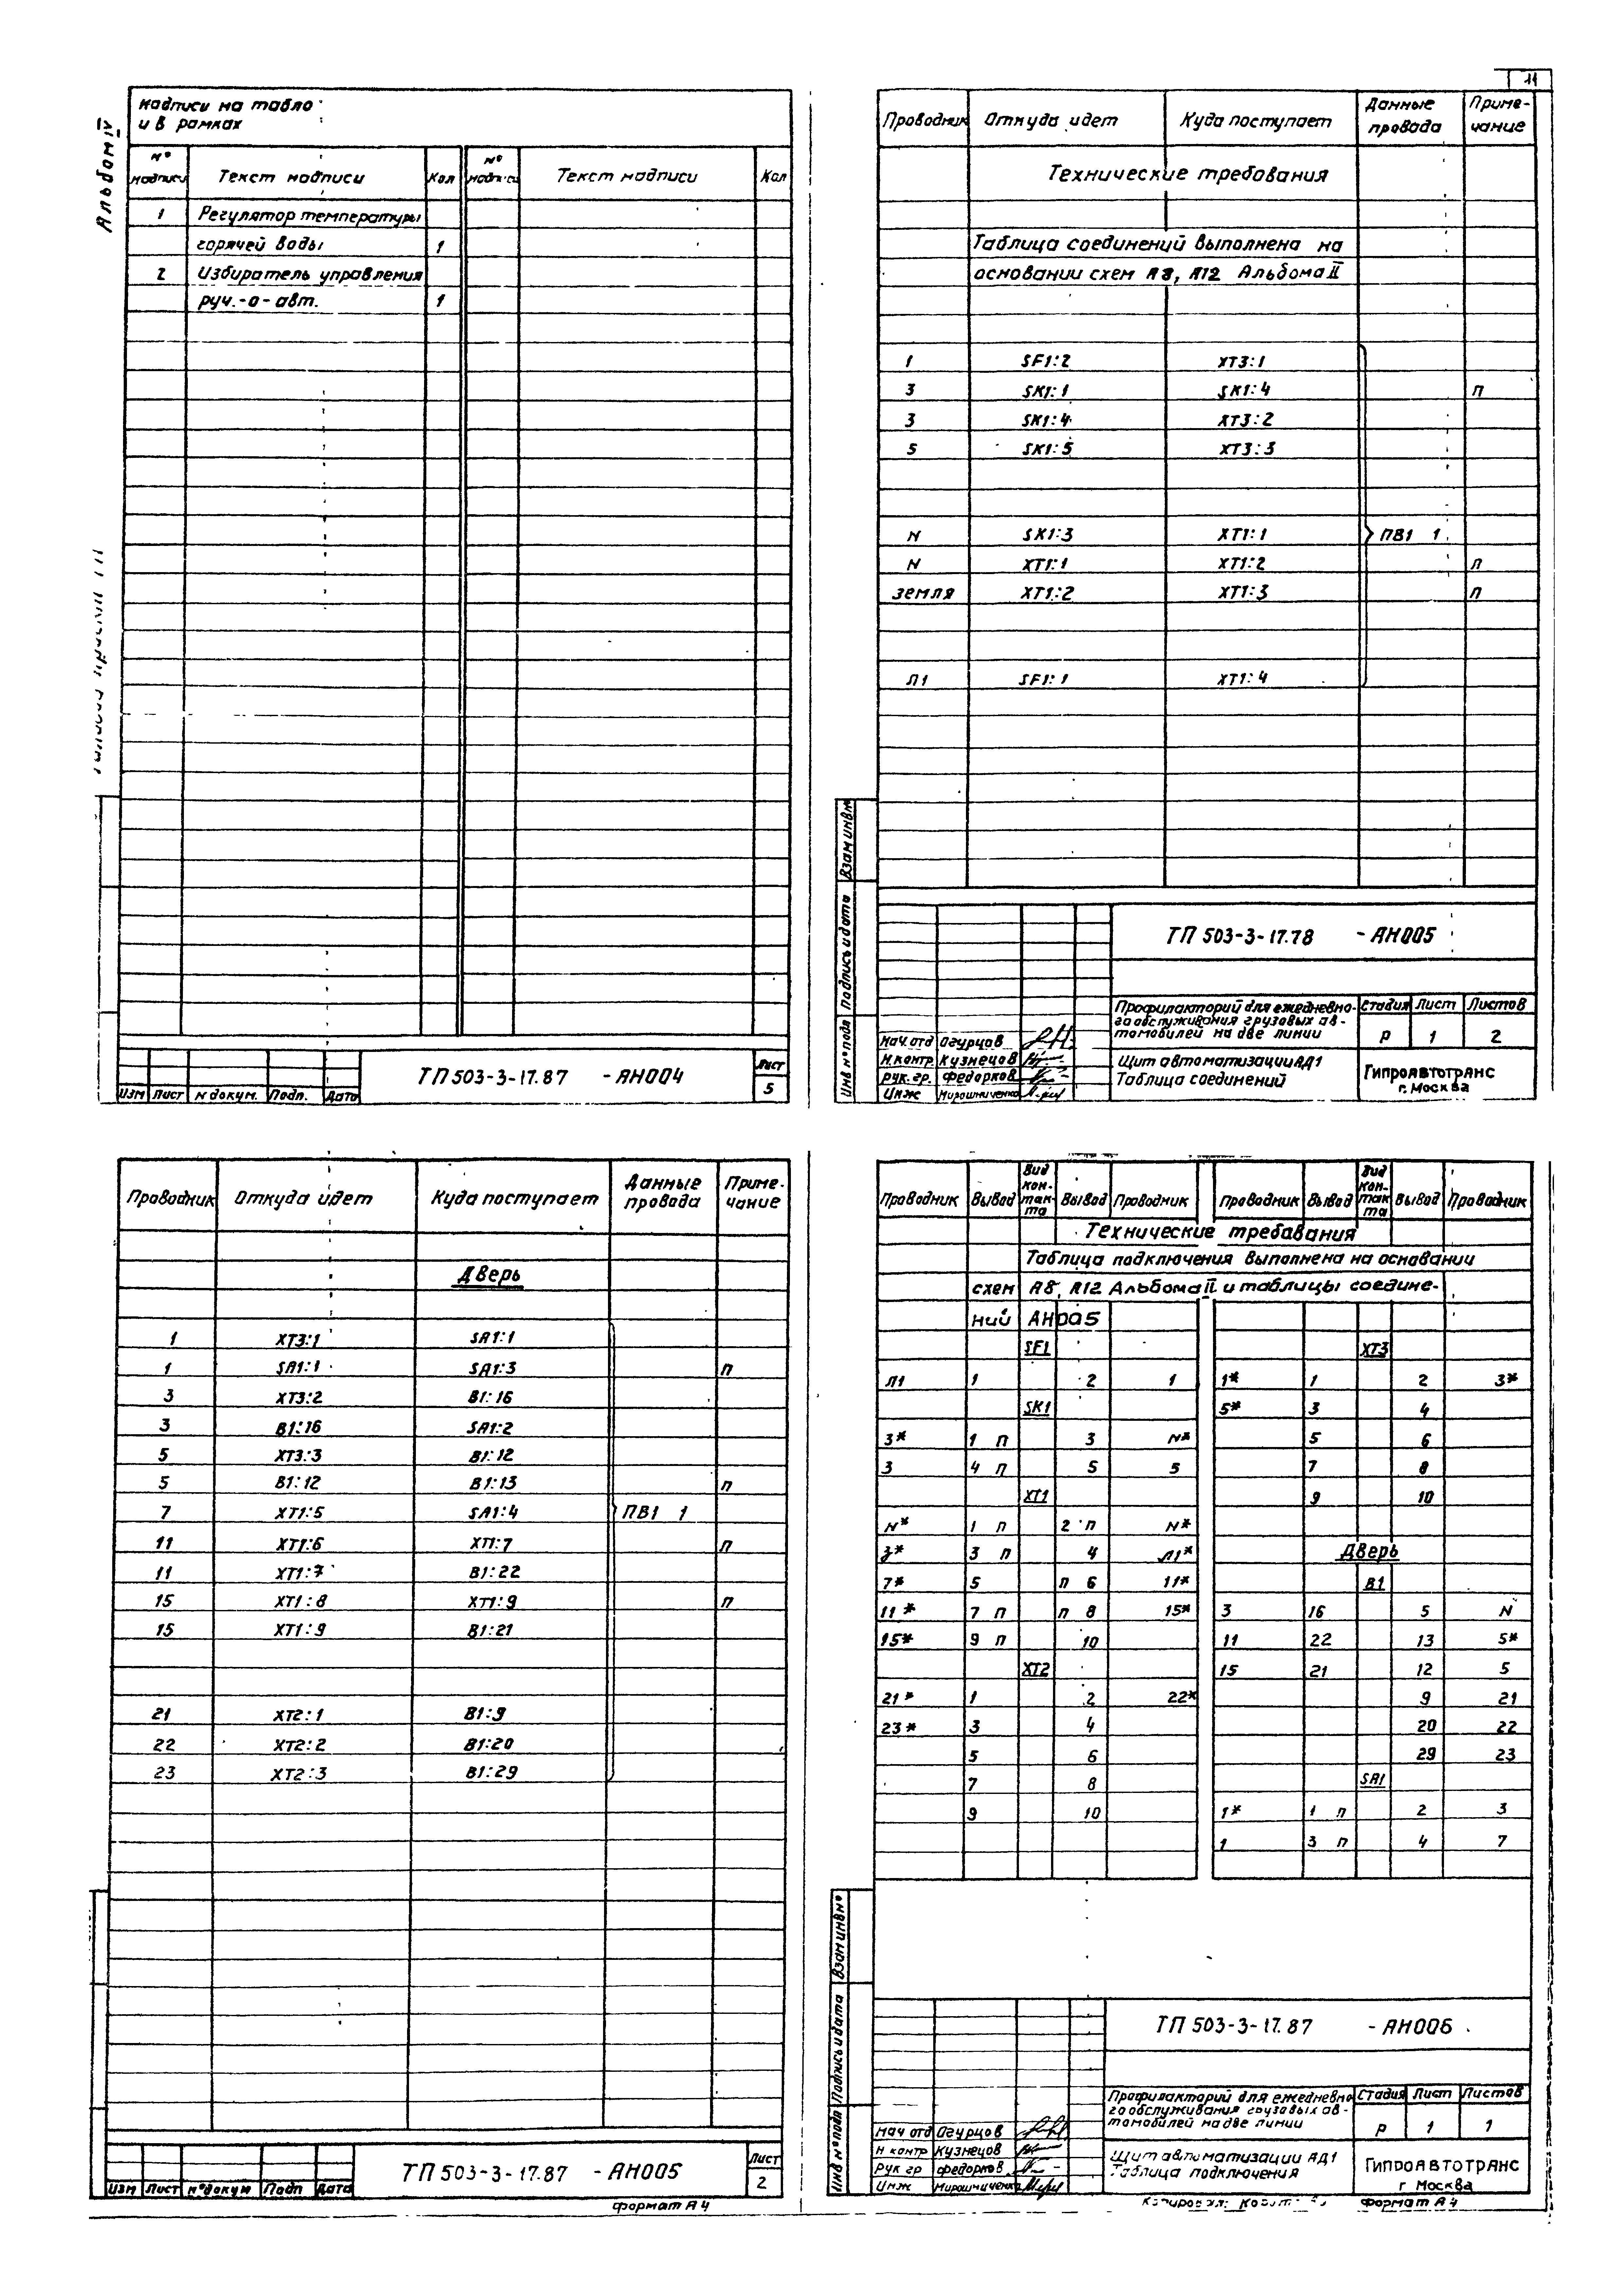 11
Альбом IV
надписи на табло
и в рамках
№ надписи Текст надписи Кол № надписи Текст надписи Кол
1 Регулятор температуры
горячей воды 1
2 Избиратель управления
руч.-о-авт. 1
Изм Лист № докум. Подп. Дата
ТП 503-3-17.87 -АН004
Лист
5
Проводник Откуда идет Куда поступает Данные провода Примечание
Технические требования
Таблица соединений выполнена на
основании схем А8, А12 Альбома II
1 SF1:2 XT3:1
3 SK1:1 SK1:4 п
3 SK1:4 XT3:2
5 SK1:5 XT3:3
N SK1:3 XT1:1 ПВ1 1
N XT1:1 XT1:2 п
земля XT1:2 XT1:3 п
Л1 SF1:1 XT1:4
Взам инв №
Подпись и дата
Инв № подл
ТП 503-3-17.78 -АН005
Профилакторий для ежедневно-
го обслуживания грузовых ав-
томобилей на две линии
Стадия Лист Листов
Р 1 2
Нач. отд Огурцов
Н.контр Кузнецов
Рук. гр. Федорков
Инж Мирошниченко
Щит автоматизации АД1
Таблица соединений
Гипроавтотранс
г. Москва
Проводник Откуда идет Куда поступает Данные провода Приме-чание
Дверь
1 XT3:1 SA1:1
1 SA1:1 SA1:3 п
3 XT3:2 B1:16
3 B1:16 SA1:2
5 XT3:3 B1:12
5 B1:12 B1:13 п
7 XT1:5 SA1:4 ПВ1 1
11 XT1:6 XT1:7 п
11 XT1:7 B1:22
15 XT1:8 XT1:9 п
15 XT1:9 B1:21
21 XT2:1 B1:9
22 XT2:2 B1:20
23 XT2:3 B1:29
Изм Лист № докум Подп Дата
ТП 503-3-17.87 -АН005
Лист
2
формат А4
Проводник Вывод Вид кон-так-та Вывод Проводник Проводник Вывод Вид кон-так-та Вывод Проводник
Технические требавания
Таблица подключения выполнена на основании
схем А8, А12 Альбома II и таблицы соедине-
ний АН005
SF1 XT3
Л1 1 2 1 1* 1 2 3*
SK1 5* 3 4
3* 1 п 3 N* 5 6
3 4 п 5 5 7 8
XT1 9 10
N* 1 п 2 п N*
3* 3 п 4 Л1* Дверь
7* 5 п 6 11* B1
11* 7 п п 8 15* 3 16 5 N
15* 9 п 10 11 22 13 5*
XT2 15 21 12 5
21* 1 2 22* 9 21
23* 3 4 20 22
5 6 29 23
7 8 SA1
9 10 1* 1 п 2 3
1 3 п 4 7
Взам инв №
Подпись и дата
Инв № подл
ТП 503-3-17.87 -АН006
Профилакторий для ежедневно
го обслуживания грузовых ав-
томобилей на две линии
Стадия Лист Листов
Р 1 1
Нач отд Огурцов
Н контр Кузнецов
Рук гр Федорков
Инж Мирошниченко
Щит автоматизации АД1
Таблица подключения
Гипроавтотранс
г Москва
Копировал:
Формат А4